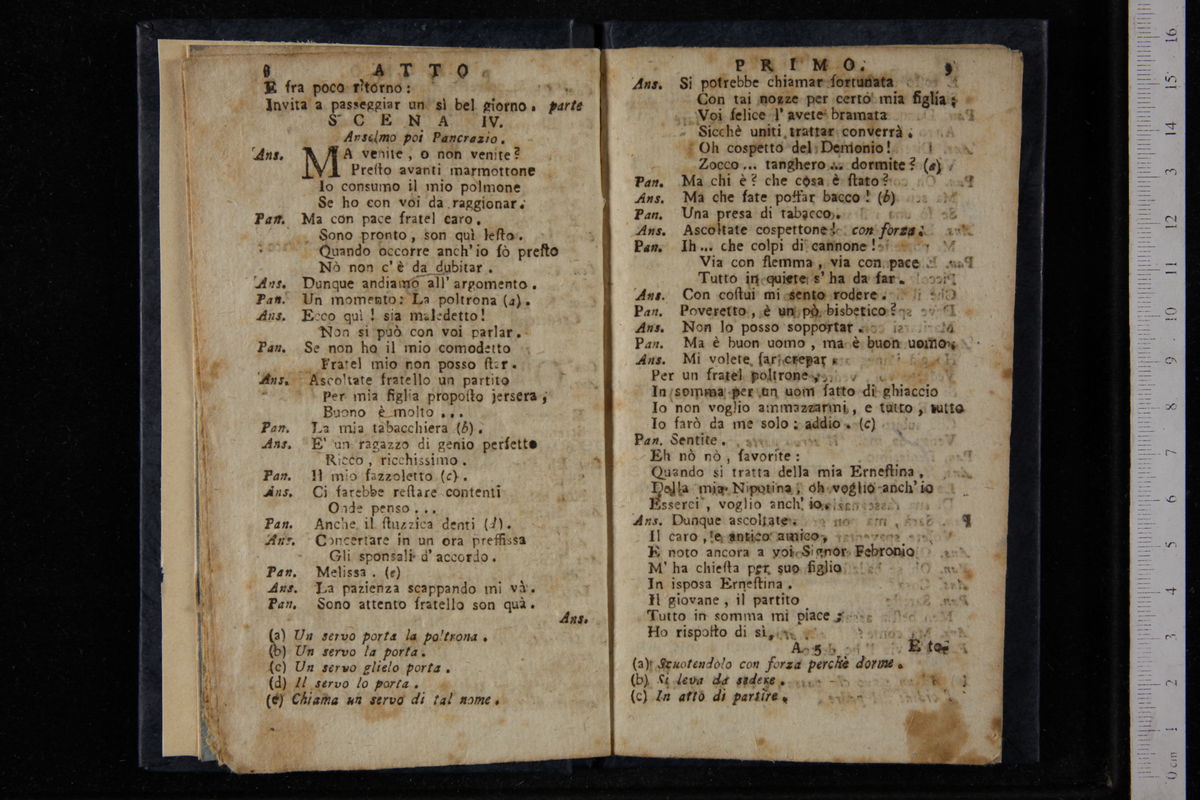 8 ATTO
E fra poco ritorno:
Invita a passeggiar un sì bel giorno. parte
SCENA IV.
Anselmo poi Pancrazio.
Ans. MA venite, o non venite?
Presto avanti marmottone
Io consumo il mio polmone
Se ho con voi da raggionar.
Pan. Ma con pace fratel caro.
Sono pronto, son quì lesto.
Quando occorre anch'io fò presto
Nò non c'è da dubitar.
Ans. Dunque andiamo all'argomento.
Pan. Un momento: La poltrona (a).
Ans. Ecco quì! sia maledetto!
Non si può con voi parlar.
Pan. Se non ho il mio comodetto
Fratel mio non posso star.
Ans. Ascoltate fratello un partito
Per mia figlia proposto jersera,
Buono è molto...
Pan. La mia tabacchiera (b).
Ans. E' un ragazzo di genio perfetto
Ricco, ricchissimo.
Pan. Il mio fazzoletto (c).
Ans. Ci farebbe restare contenti
Onde penso...
Pan. Anche il stuzzica denti (d).
Ans. Concertare in un ora preffissa
Gli sponsali d'accordo.
Pan. Melissa. (e)
Ans. La pazienza scappando mi và.
Pan. Sono attento fratello son quà.
Ans.
(a) Un servo porta la poltrona.
(b) Un servo la porta.
(c) Un servo glielo porta.
(d) Il servo lo porta.
(e) Chiama un servo di tal nome.
PRIMO. 9
Ans. Si potrebbe chiamar fortunata
Con tai nozze per certo mia figlia;
Voi felice l'avete bramata
Sicchè uniti trattar converrà.
Oh cospetto del Demonio!
Zocco... tanghero... dormite? (a)
Pan. Ma chi è? che cosa è stato?
Ans. Ma che fate poffar bacco! (b)
Pan. Una presa di tabacco.
Ans. Ascoltate cospettone! con forza.
Pan. Ih... che colpi di cannone!
Via con flemma, via con pace
Tutto in quiete s'ha da far.
Ans. Con costui mi sento rodere.
Pan. Poveretto, è un pò bisbetico?
Ans. Non lo posso sopportar.
Pan. Ma è buon uomo, ma è buon uomo;
Ans. Mi volete far crepar.
Per un fratel poltrone,
In somma per un uom fatto di ghiaccio
Io non voglio ammazzarmi, e tutto, tutto
Io farò da me solo: addio. (c)
Pan. Sentite.
Eh nò nò, favorite:
Quando si tratta della mia Ernestina,
Della mia Nipotina, oh voglio anch'io
Esserci, voglio anch'io.
Ans. Dunque ascoltate.
Il caro, e antico amico,
E noto ancora a voi Signor Febronio
M'ha chiesta per suo figlio
In isposa Ernestina.
Il giovane, il partito
Tutto in somma mi piace;
Ho risposto di sì,
A 5 E to-
(a) Scuotendolo con forza perchè dorme.
(b) Si leva da sedere.
(c) In atto di partire.